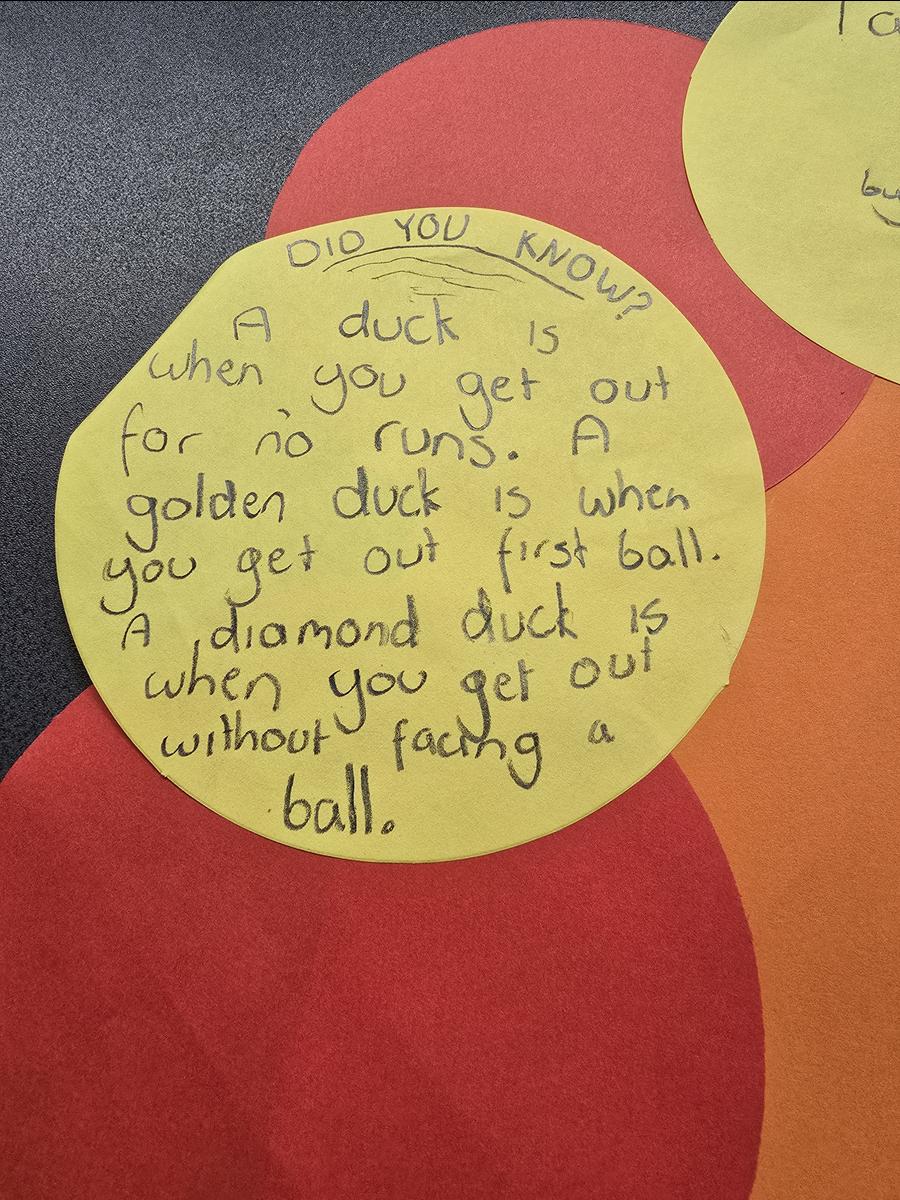 DID YOU KNOW?
A duck is
when you get out
for no runs. A
golden duck is when
you get out first ball.
A diamond duck is
when you get out
without facing a
ball.
I